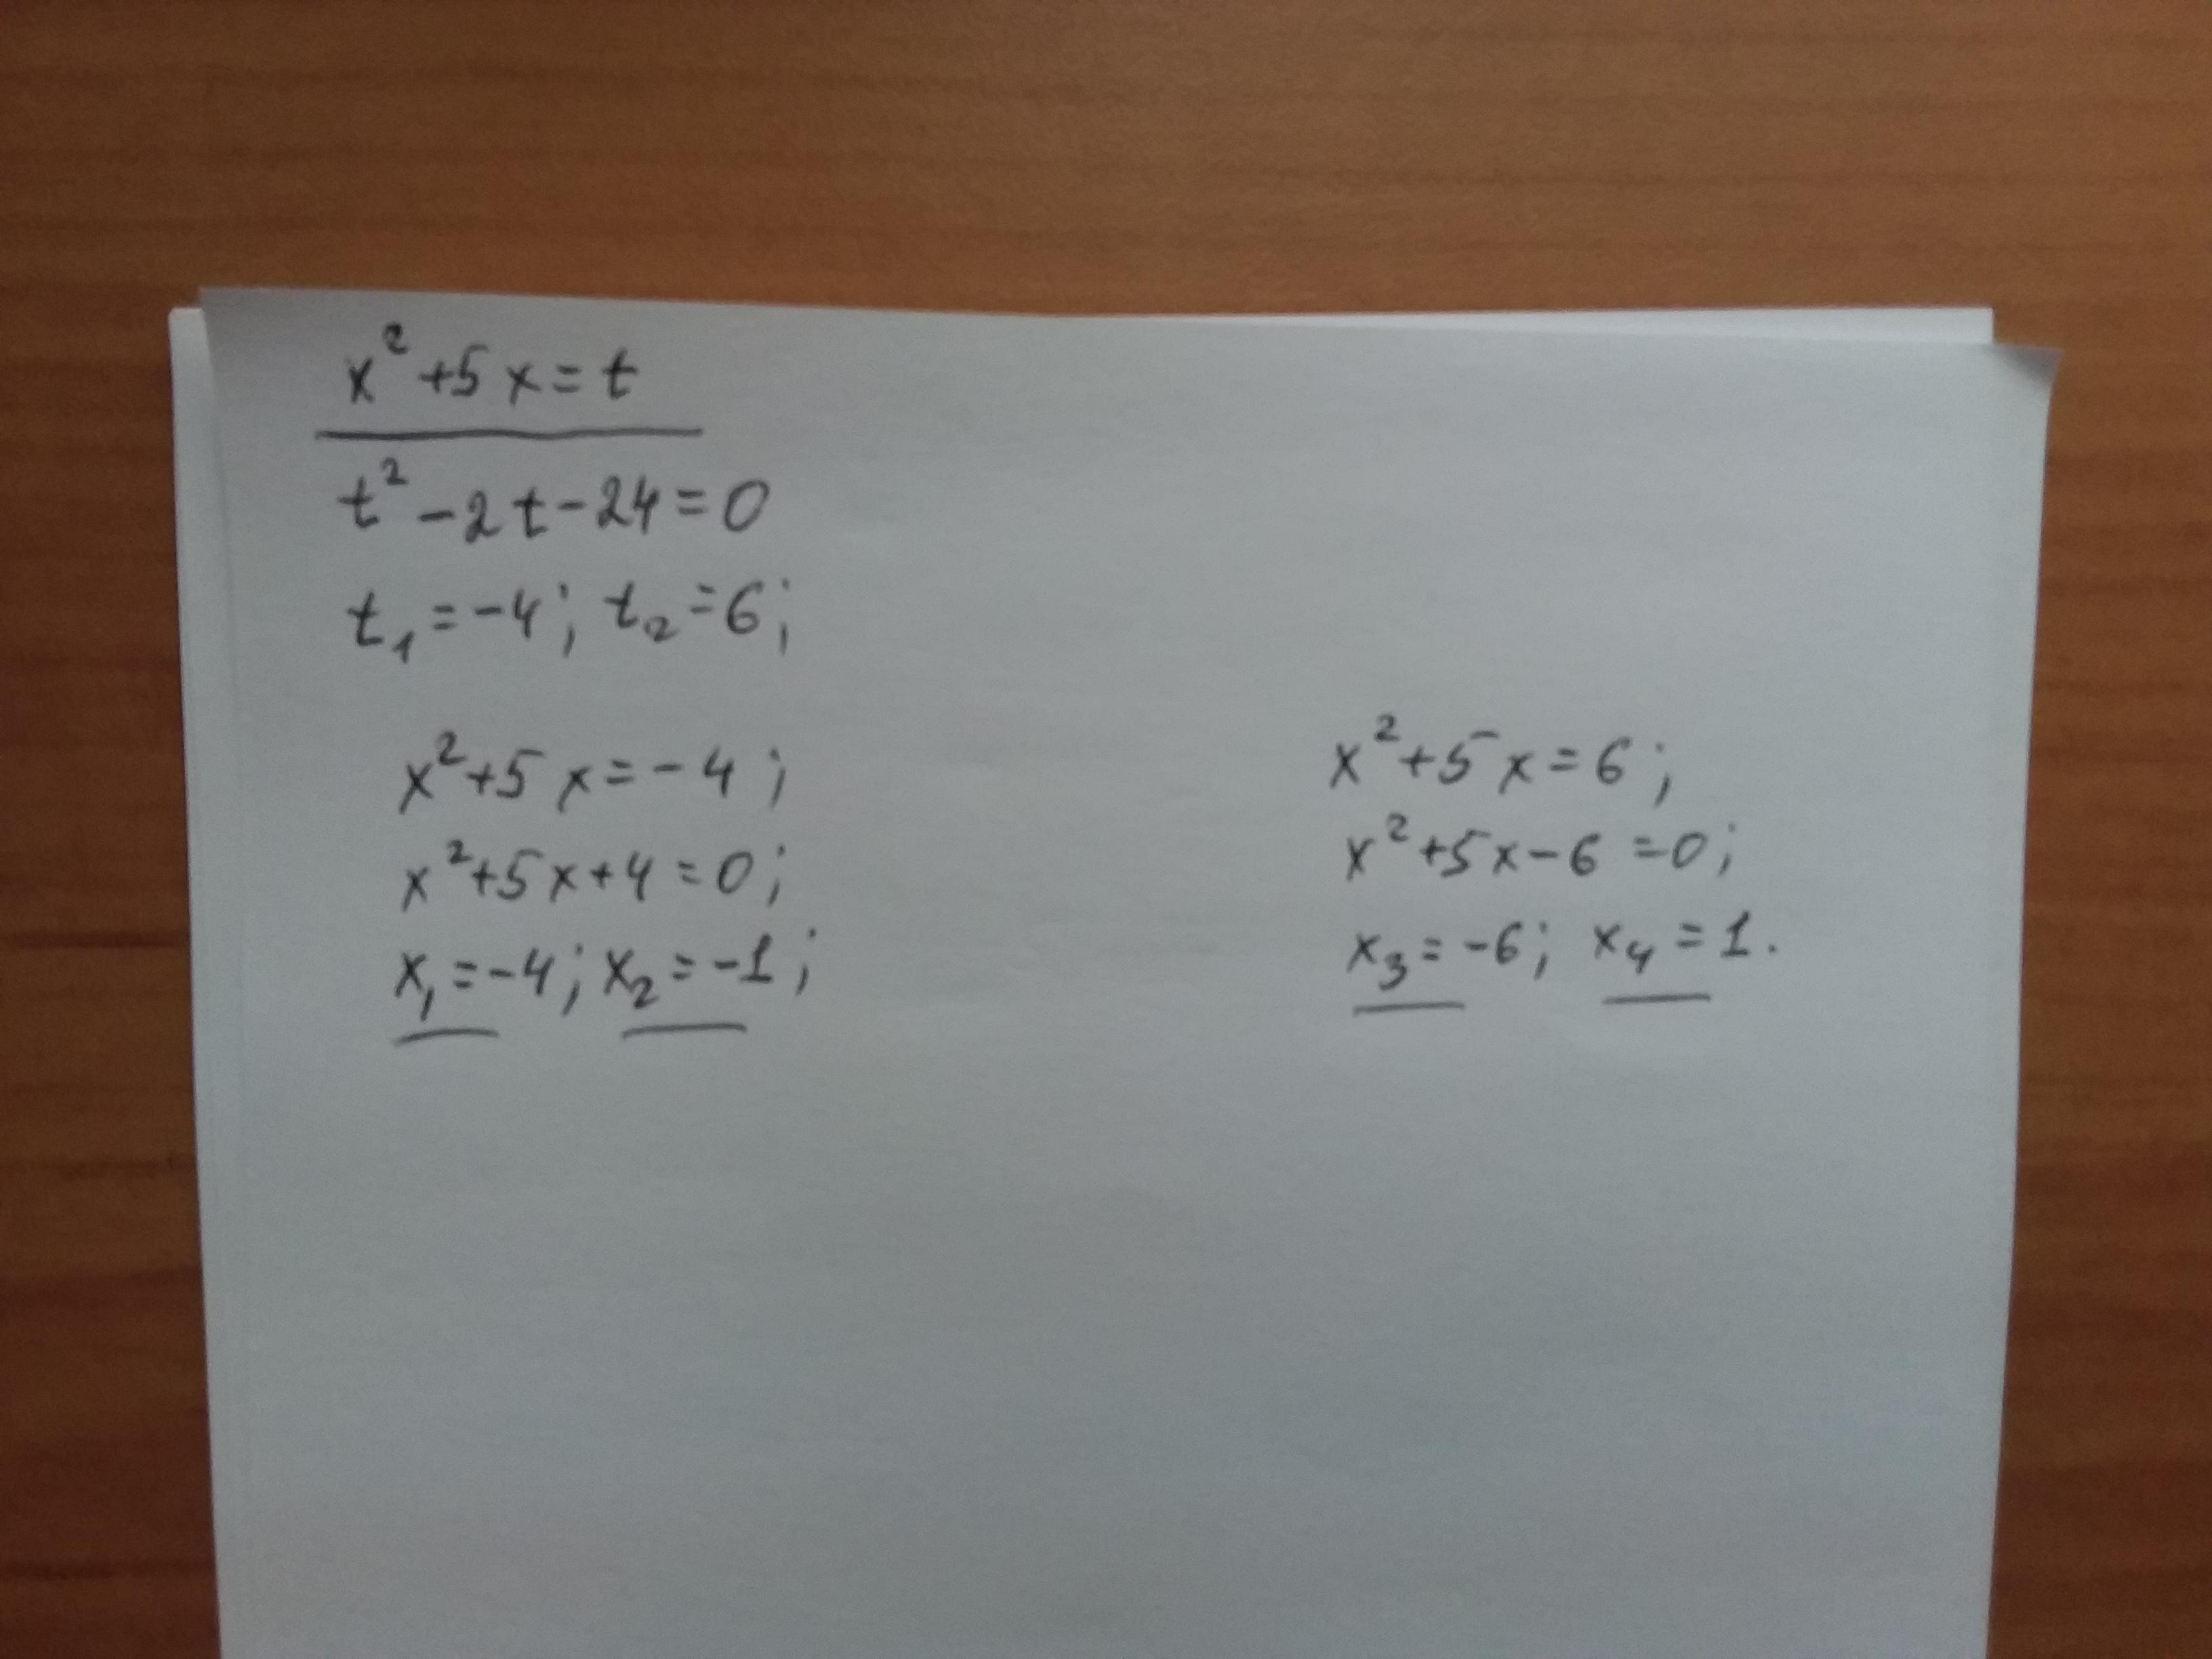 x²+5x=t
t²-2t-24=0
t₁=-4; t₂=6;
x²+5x=-4;
x²+5x+4=0;
x₁=-4; x₂=-1;
x²+5x=6;
x²+5x-6=0;
x₃=-6; x₄=1.